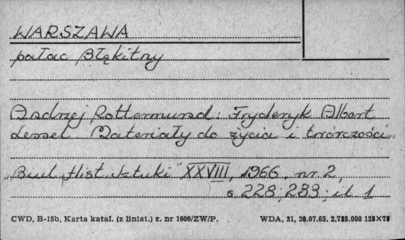 WARSZAWA
pałac Błękitny
Andrzej Rottermund: Fryderyk Albert
Lessel Materiały do życia i twórczości
"Biul Hist Sztuki" XXVIII, 1966, nr 2,
s 228, 233; il 1
CWD, B-15b, Karta katal. (z liniat.) z. nr 1606/ZW/P. WDA, 21, 28.07.65. 2.725.000 125×75